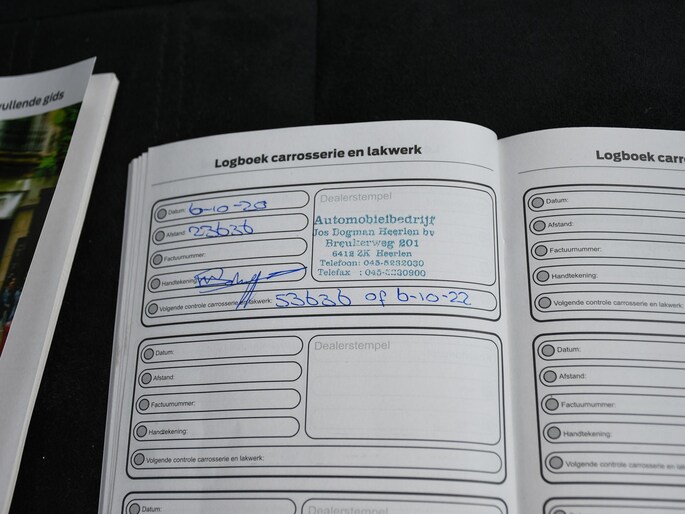 vullende gids
Logboek carrosserie en lakwerk
Datum: 6-10-20
Afstand: 23636
Factuurnummer:
Handtekening:
Dealerstempel
Automobielbedrijf
Jos Dogman Heerlen bv
Breukerweg 201
6412 ZK Heerlen
Telefoon: 045-5232030
Telefax : 045-
Volgende controle carrosserie en lakwerk: 53636 of 6-10-22
Datum:
Afstand:
Factuurnummer:
Handtekening:
Dealerstempel
Volgende controle carrosserie en lakwerk:
Datum:
Dealerstempel
Logboek carro
Datum:
Afstand:
Factuurnummer:
Handtekening:
Volgende controle carrosserie en lakwerk:
Datum:
Afstand:
Factuurnummer:
Handtekening:
Volgende controle carrosserie en lakwerk:
Datum: